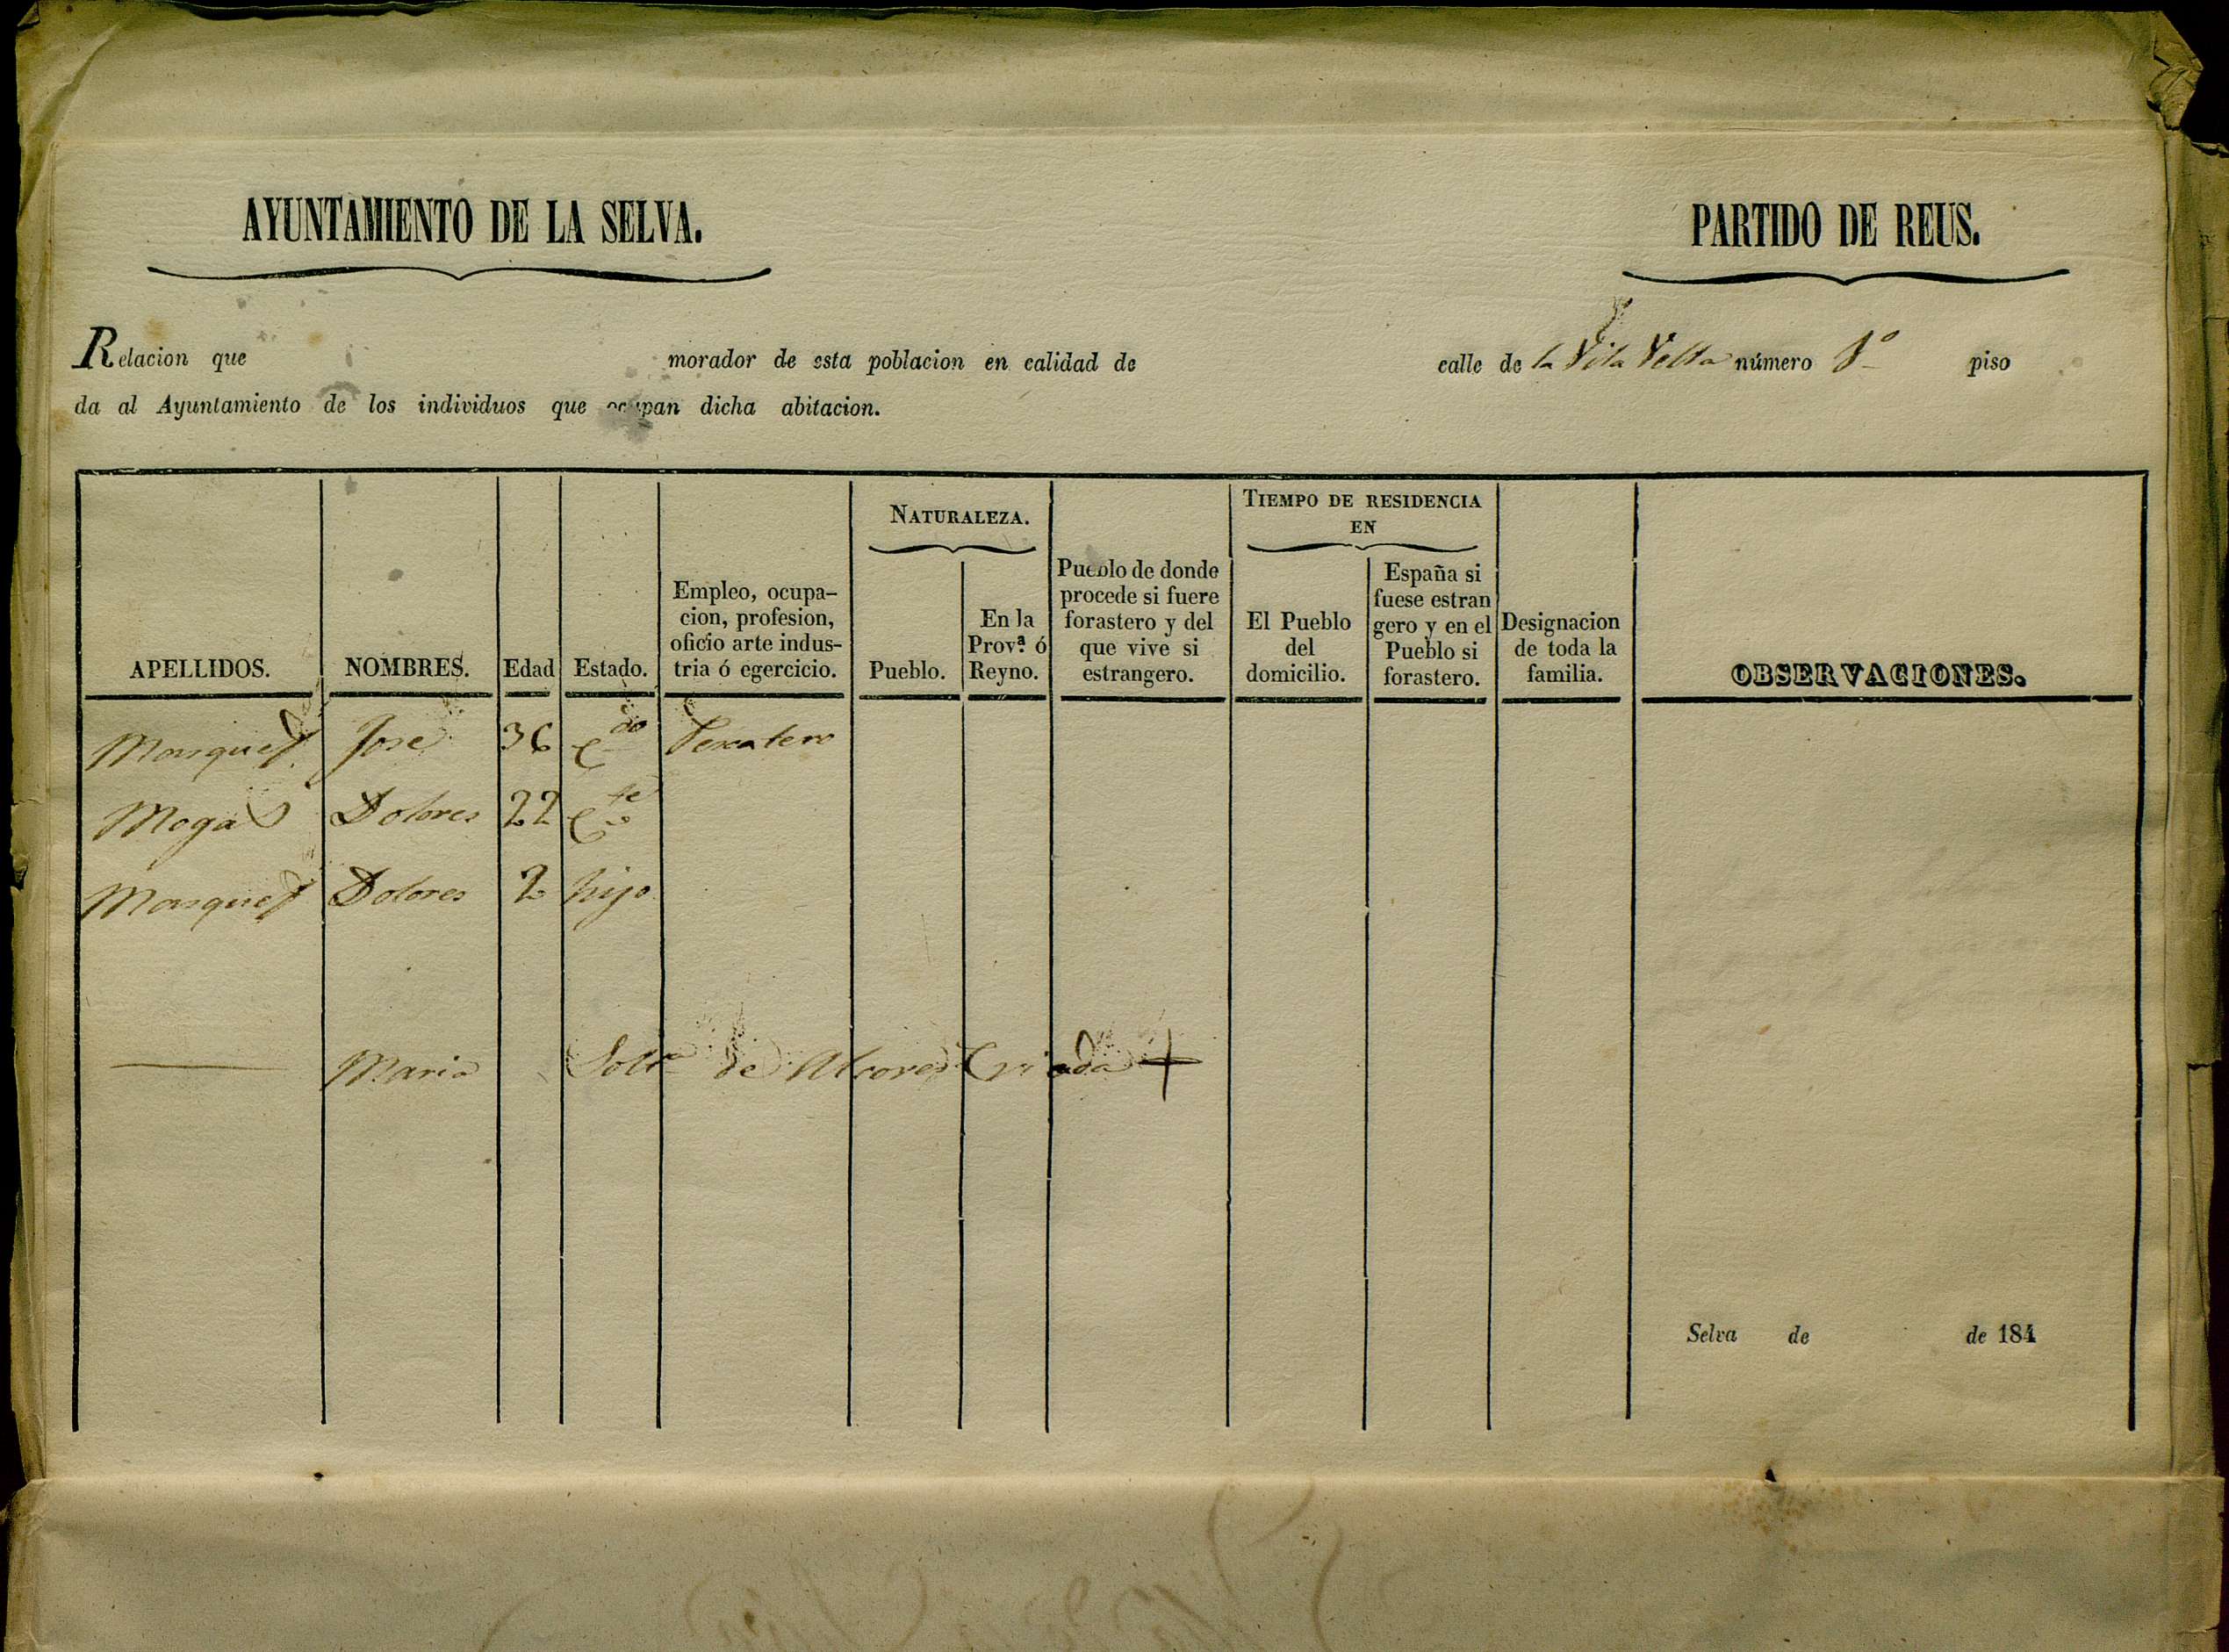 AYUNTAMIENTO DE LA SELVA.
PARTIDO DE REUS.
Relacion que morador de esta poblacion en calidad de calle de la Vila Vella número 1º piso
da al Ayuntamiento de los individuos que ocupan dicha abitacion.
APELLIDOS.
NOMBRES.
Edad
Estado.
Empleo, ocupa-
cion, profesion,
oficio arte indus-
tria ó egercicio.
NATURALEZA.
Pueblo.
En la
Provª ó
Reyno.
Pueblo de donde
procede si fuere
forastero y del
que vive si
estrangero.
TIEMPO DE RESIDENCIA
EN
El Pueblo
del
domicilio.
España si
fuese estran
gero y en el
Pueblo si
forastero.
Designacion
de toda la
familia.
OBSERVACIONES.
Masquef Jose 36 Cdo
Mogas Dolores 22 Cte
Masquef Dolores 2 hijo
Maria Solta de Alcover Criada +
Selva de de 184